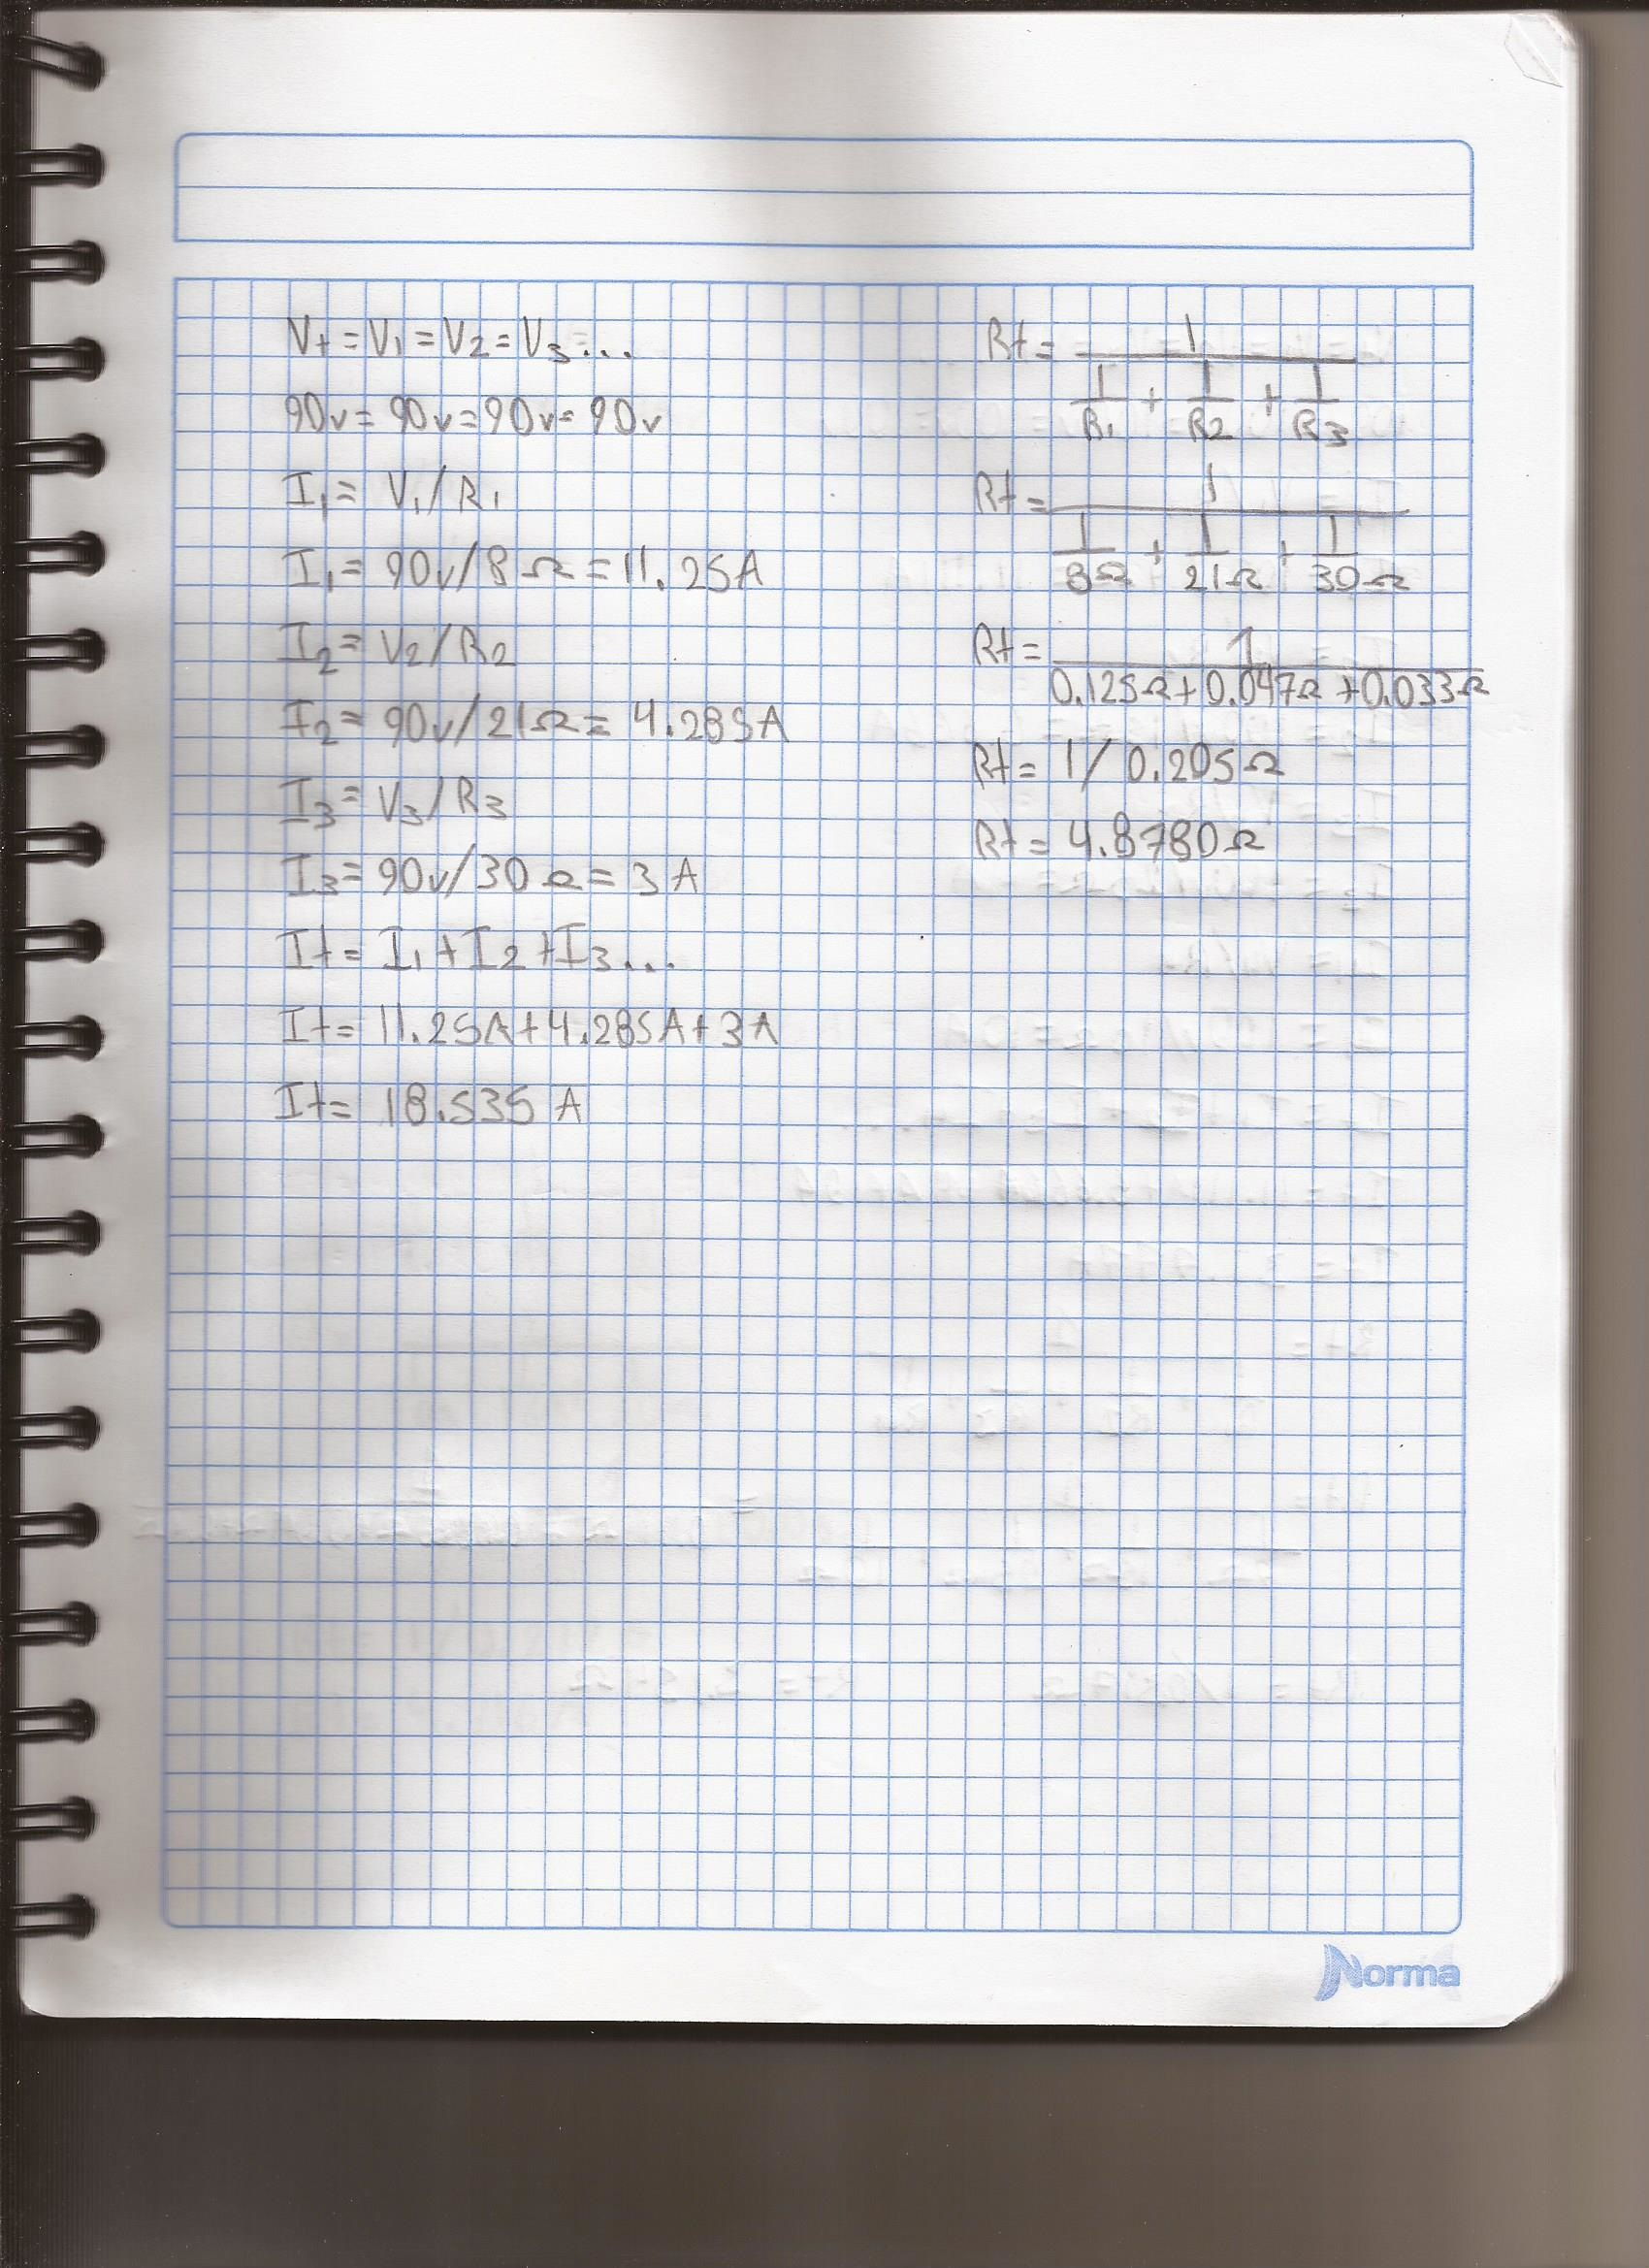 Vt = V1 = V2 = V3...
90v = 90v = 90v = 90v
I1 = V1/R1
I1 = 90v/8Ω = 11.25A
I2 = V2/R2
I2 = 90v/21Ω = 4.285A
I3 = V3/R3
I3 = 90v/30Ω = 3A
It = I1 + I2 + I3...
It = 11.25A + 4.285A + 3A
It = 18.535 A
Rt = 1
1/R1 + 1/R2 + 1/R3
Rt = 1
1/8Ω + 1/21Ω + 1/30Ω
Rt = 1
0.125Ω + 0.047Ω + 0.033Ω
Rt = 1/0.205Ω
Rt = 4.8780Ω
Norma